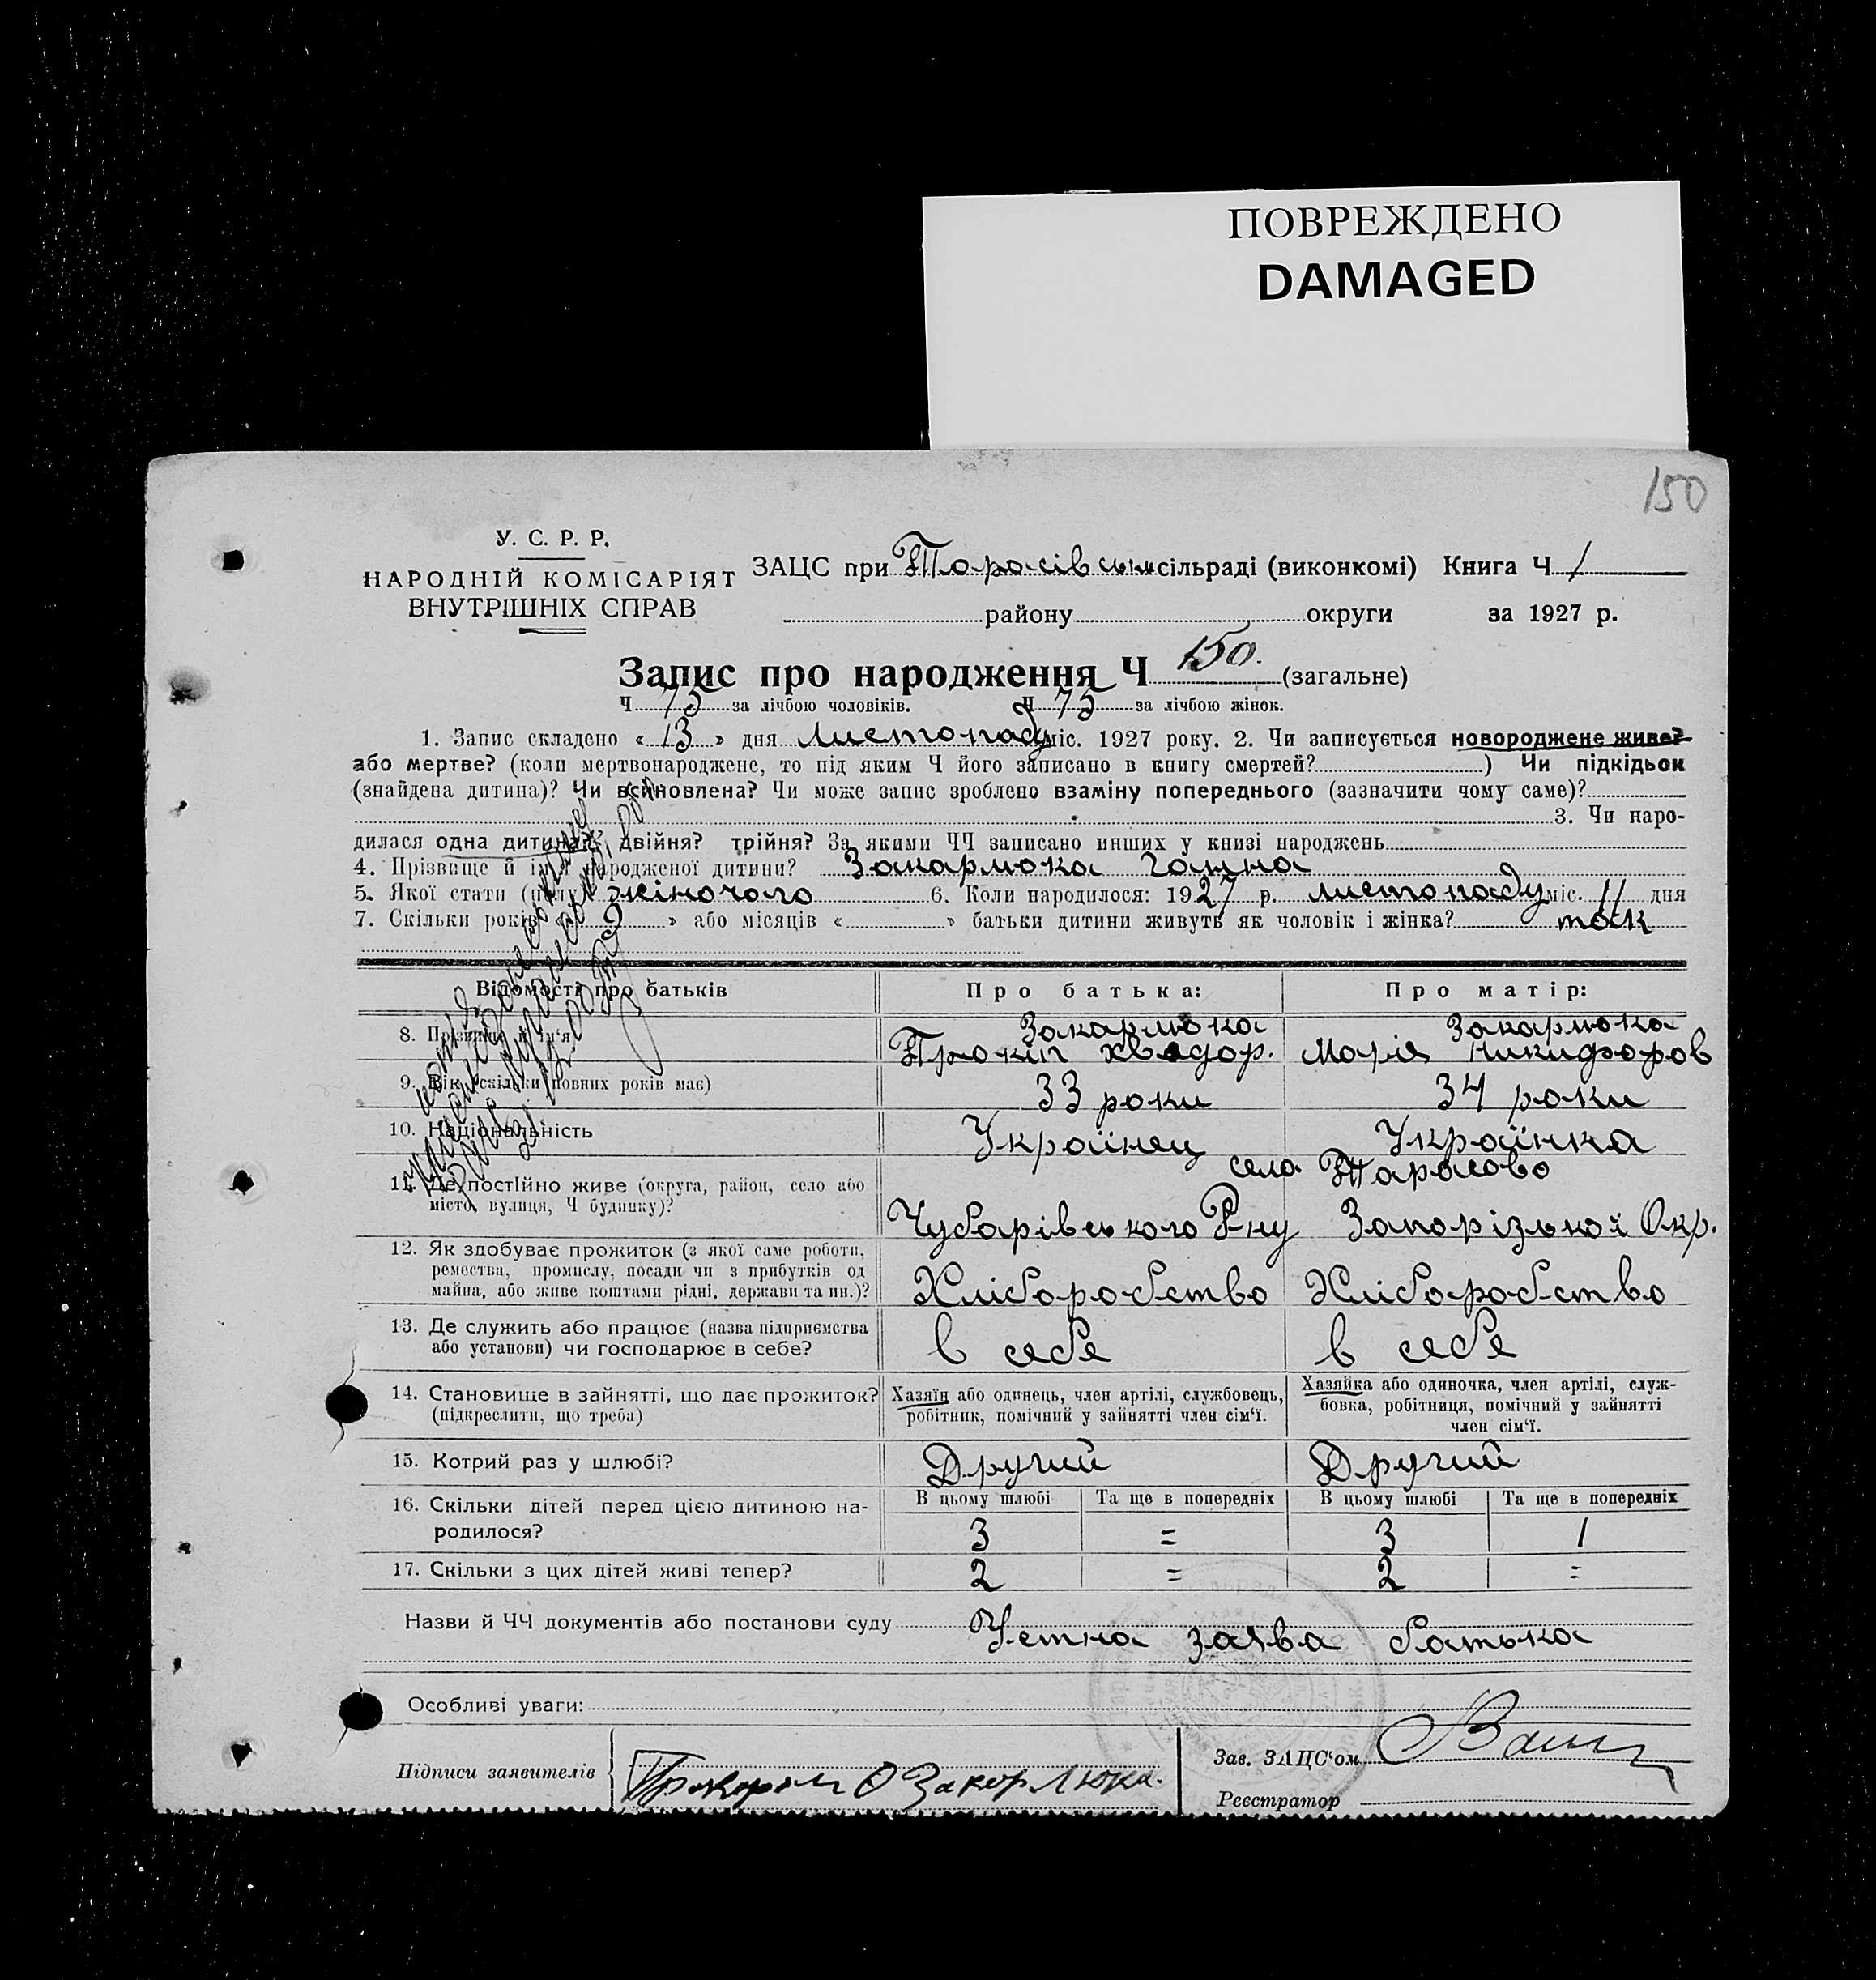 ПОВРЕЖДЕНО
DAMAGED
150
У. С. Р. Р.
НАРОДНІЙ КОМІСАРІЯТ
ВНУТРІШНІХ СПРАВ
ЗАЦС при Тарасівськ сільраді (виконкомі) Книга Ч 1
району округи за 1927 р.
Запис про народження Ч 150. (загальне)
Ч 75 за лічбою чоловіків. Ч 75 за лічбою жінок.
1. Запис складено « 13 » дня листопаду міс. 1927 року. 2. Чи записується новороджене живе?
або мертве? (коли мертвонароджене, то під яким Ч його записано в книгу смертей? ) Чи підкідьок
(знайдена дитина)? Чи всиновлена? Чи може запис зроблено взаміну попереднього (зазначити чому саме)?
3. Чи наро-
дилася одна дитина? двійня? трійня? За якими ЧЧ записано инших у книзі народжень
4. Прізвище й ім'я народженої дитини? Закарлюка Галина
5. Якої стати (полу) жіночого 6. Коли народилося: 1927 р. листопаду міс. 11 дня
7. Скільки років « 9 » або місяців « » батьки дитини живуть як чоловік і жінка? так
Відомості про батьків Про батька: Про матір:
8. Прізвище й ім'я Закарлюка Закарлюка
Прокіп Хведор. Марія Никифоров
9. Вік (скільки повних років має) 33 роки 34 роки
10. Національність Українец Українка
села Тарасово
11. Де постійно живе (округа, район, село або
місто, вулиця, Ч будинку)? Чубарівського Р-ну Запорізької Окр.
12. Як здобуває прожиток (з якої саме роботи,
ремества, промислу, посади чи з прибутків од
майна, або живе коштами рідні, держави та ин.)? Хліборобство Хліборобство
13. Де служить або працює (назва підприємства
або установи) чи господарює в себе? в себе в себе
14. Становище в зайнятті, що дає прожиток? Хазяїн або одинець, член артілі, службовець, Хазяйка або одиночка, член артілі, служ-
(підкреслити, що треба) робітник, помічний у зайнятті член сім'ї. бовка, робітниця, помічний у зайнятті
член сім'ї.
15. Котрий раз у шлюбі? Другий Другий
16. Скільки дітей перед цією дитиною на- В цьому шлюбі Та ще в попередніх В цьому шлюбі Та ще в попередніх
родилося? 3 = 3 1
17. Скільки з цих дітей живі тепер? 2 = 2 =
Назви й ЧЧ документів або постанови суду Устна заява батька
Особливі уваги:
Підписи заявителів Закарлюка. Зав. ЗАЦС'ом
Реєстратор